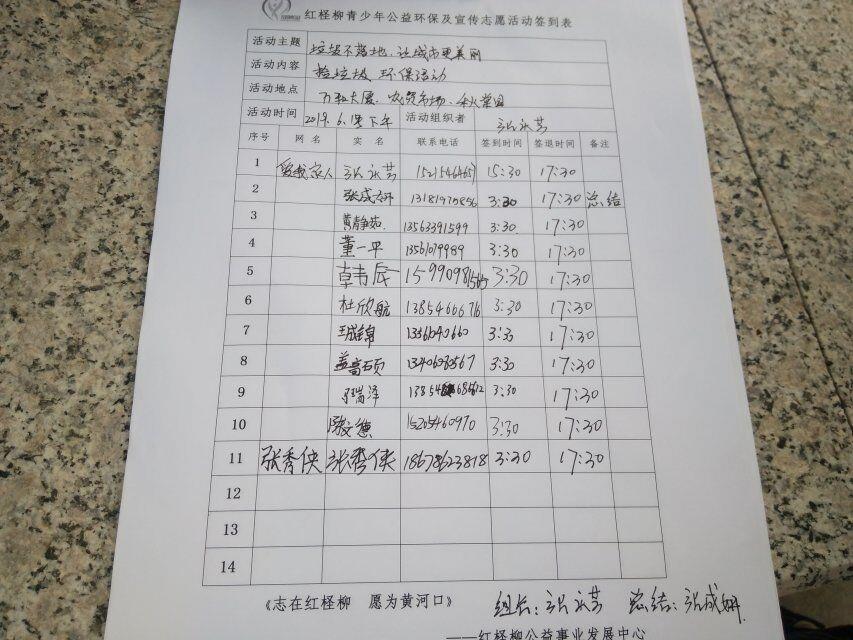 红柽柳青少年公益环保及宣传志愿活动签到表
活动主题 垃圾不落地,让城市更美丽
活动内容 捡垃圾 环保活动
活动地点 万和大厦、农贸市场、
活动时间 2019.6.1 下午 活动组织者 张永芳
序号 网名 实名 联系电话 签到时间 签退时间 备注
1 家人 张永芳 15:30 17:30
2 张成妍 13181970856 3:30 17:30 总结
3 黄静茹 13563391599 3:30 17:30
4 董一平 13561079989 3:30 17:30
5 韩辰一 3:30 17:30
6 杜欣航 13854666676 3:30 17:30
7 3:30 17:30
8 3:30 17:30
9 3:30 17:30
10 15205460970 3:30 17:30
11 张秀侠 张秀侠 18678623818 3:30 17:30
12
13
14
《志在红柽柳 愿为黄河口》 组长:张永芳 总结:张成妍
——红柽柳公益事业发展中心